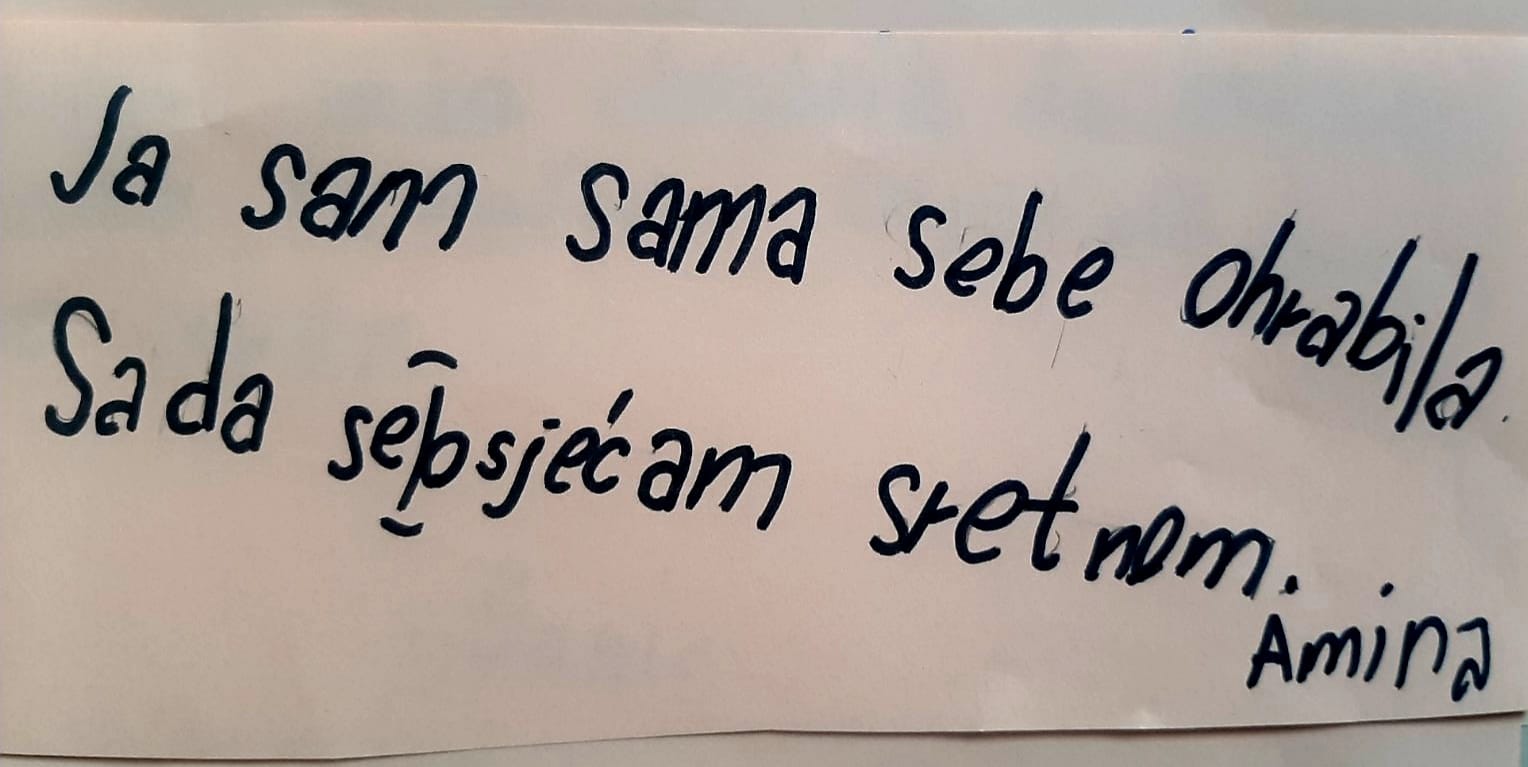 Ja sam sama sebe ohrabila.
Sada se osjećam sretnom.
Amina